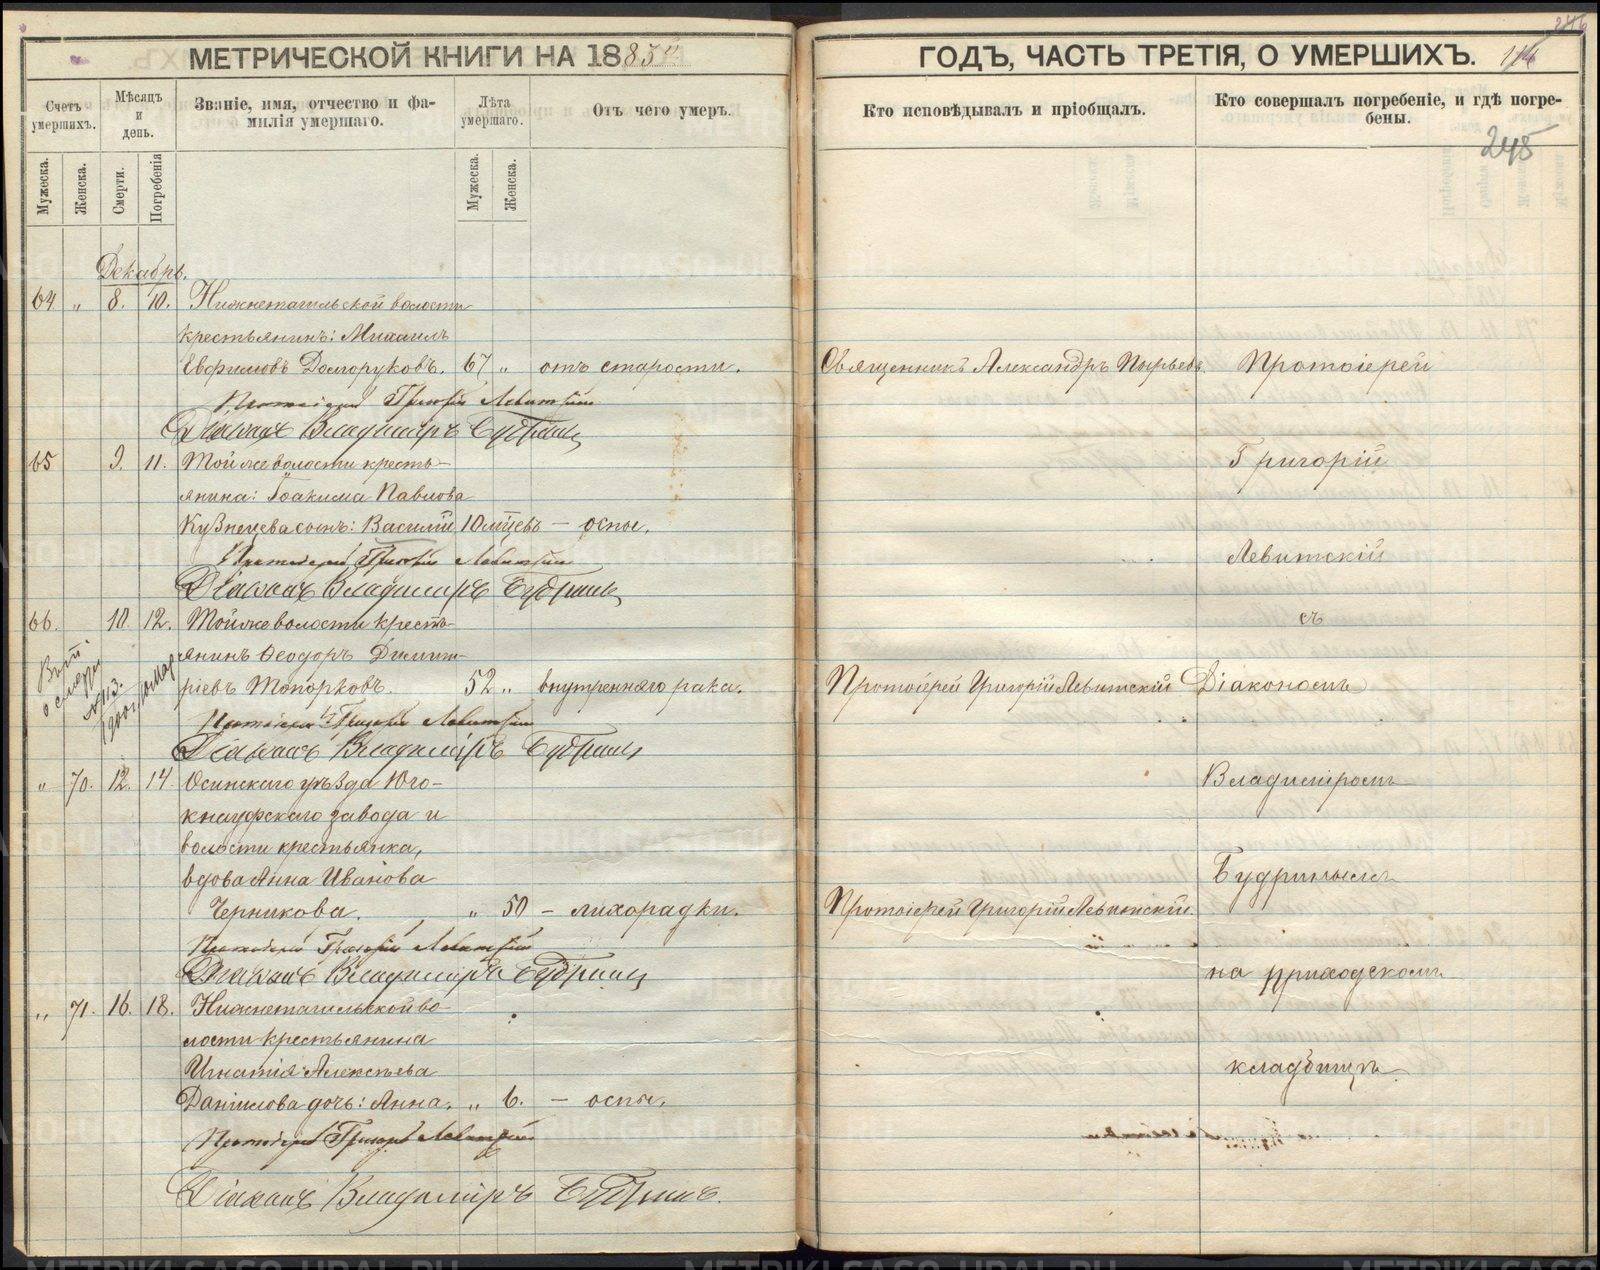 МЕТРИЧЕСКОЙ КНИГИ НА 1885
Счетъ умершихъ.
Мѣсяцъ и день.
Званіе, имя, отчество и фа-
милія умершаго.
Лѣта умершаго.
Отъ чего умеръ.
Мужеска.
Женска.
Смерти.
Погребенія
Мужеска.
Женска.
Декабрь.
64 " 8. 10. Нижнетагильской волости
крестьянинъ: Михаилъ
Евфимовъ Долгоруковъ. 67 " отъ старости.
Протоіерей Григорій Левитскій
Діаконъ Владиміръ Будринъ
65 9. 11. Той же волости кресть-
янина: Іоакима Павлова
Кузнецева сынъ: Василій 10 мѣцевъ – оспы.
Протоіерей Григорій Левитскій
Діаконъ Владиміръ Будринъ
66. 10. 12. Той же волости кресть-
янинъ Ѳеодоръ Димит-
ріевъ Топорковъ. 52 " внутренняго рака.
Протоіерей Григорій Левитскій
Діаконъ Владиміръ Будринъ
" 70. 12. 14. Осинскаго уѣзда Юго-
кнауфскаго завода и
волости крестьянка,
вдова Анна Иванова
Черникова. " 50 – лихорадки.
Протоіерей Григорій Левитскій
Діаконъ Владиміръ Будринъ
" 71. 16. 18. Нижнетагильской во-
лости крестьянина
Игнатія Алексѣева
Данилова дочь: Анна. " 6. – оспы.
Протоіерей Григорій Левитскій
Діаконъ Владиміръ Будринъ.
ГОДЪ, ЧАСТЬ ТРЕТІЯ, О УМЕРШИХЪ.
246
Кто исповѣдывалъ и пріобщалъ.
Кто совершалъ погребеніе, и гдѣ погре-
бены.
245
Священникъ Александръ Протоіерей
Григорій
Левитскій
съ
Протоіерей Григорій Левитскій Діакономъ
Владиміромъ
Будринымъ
Протоіерей Григорій Левитскій.
на приходскомъ
кладбищѣ
METRIKI.GASO-URAL.RU